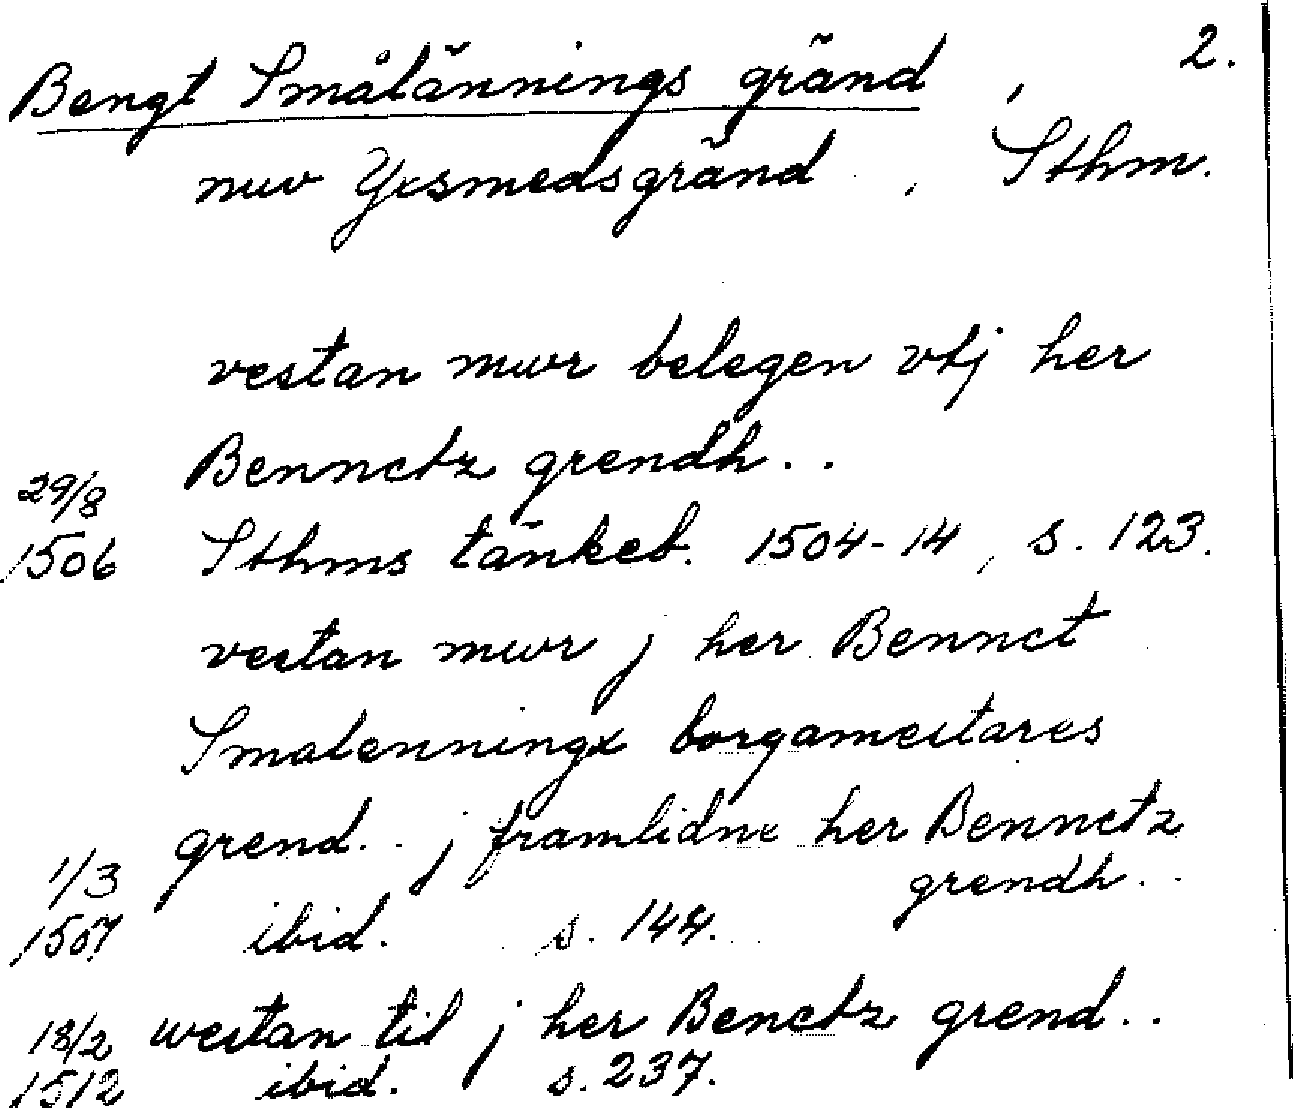 2.
Bengt Smålännings gränd ,
nuv Yxsmedsgränd , Sthm.
vestan mwr belegen vtj her
Bennctz grendh..
29/8
1506 Sthms tänkeb. 1504-14, s. 123.
vestan mwr j her Bennct
Smalenningx borgamestares
grend.. j framlidne her Bennctz
grendh..
1/3
1507 ibid. s. 144.
18/2 westan til j her Benctz grend..
1512 ibid. s. 237.